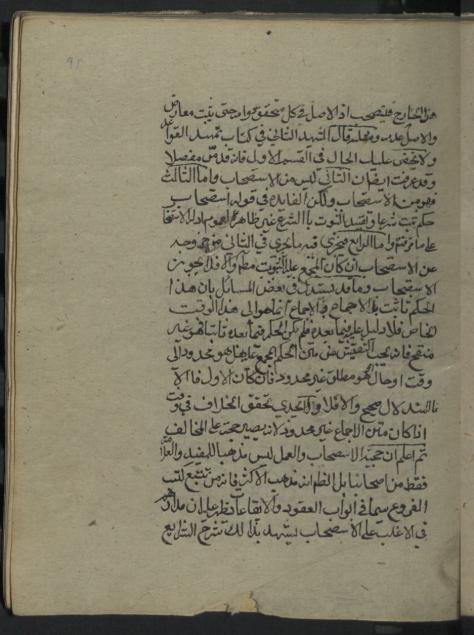 هذا الخارج فليصحب اذ الاصل في كل متحقق دوامه حتى يثبت معارض
والاصل عدمه ومحله قال الشهيد الثاني في كتاب تمهيد القواعد
ولا يخفى عليك الحال في القسم الاول فانه قد مر مفصلا
وقد عرفت ايضا ان الثاني ليس من الاستصحاب واما الثالث
فهو من الاستصحاب ولكن الفايدة في قوله استصحاب
حكم ثبت شرعا وتقييد الثبوت بالشرع غير ظاهرة
على ما عرفته واما الرابع فيجري فيه ما يجري في الثاني
عن الاستصحاب ان كان المجمع عليه الثبوت مطلقا والا فلا يجوز
الاستصحاب وما قد يستدل في بعض المسائل بان هذا
الحكم ثابت بالاجماع والاجماع انما هو الى هذا الوقت
الخاص فلا دليل عليه فيما بعده فلم يكن الحكم فيما بعده ثابتا فهو غير
صحيح فانه يجب التفتيش عن متن الحكم المجمع عليه هل هو محدود الى
وقت او حال ام هو مطلق غير محدود فان كان الاول فالا
فالاستدلال صحيح والا فلا والتحدي بتحقق الخلاف في وقت
اذا كان متن الاجماع غير محدود لانه يصير حجة على المخالف
ثم اعلم ان حجية الاستصحاب والعمل ليس مذهبا للمفيد والعلامة
فقط من اصحابنا بل الظاهر انه مذهب الاكثر فانه من تتبع كتب
الفروع سيما في ابواب العقود والايقاعات يظهر عليه ان مدارهم
في الاغلب على الاستصحاب يشهد بذلك شرح الشرايع